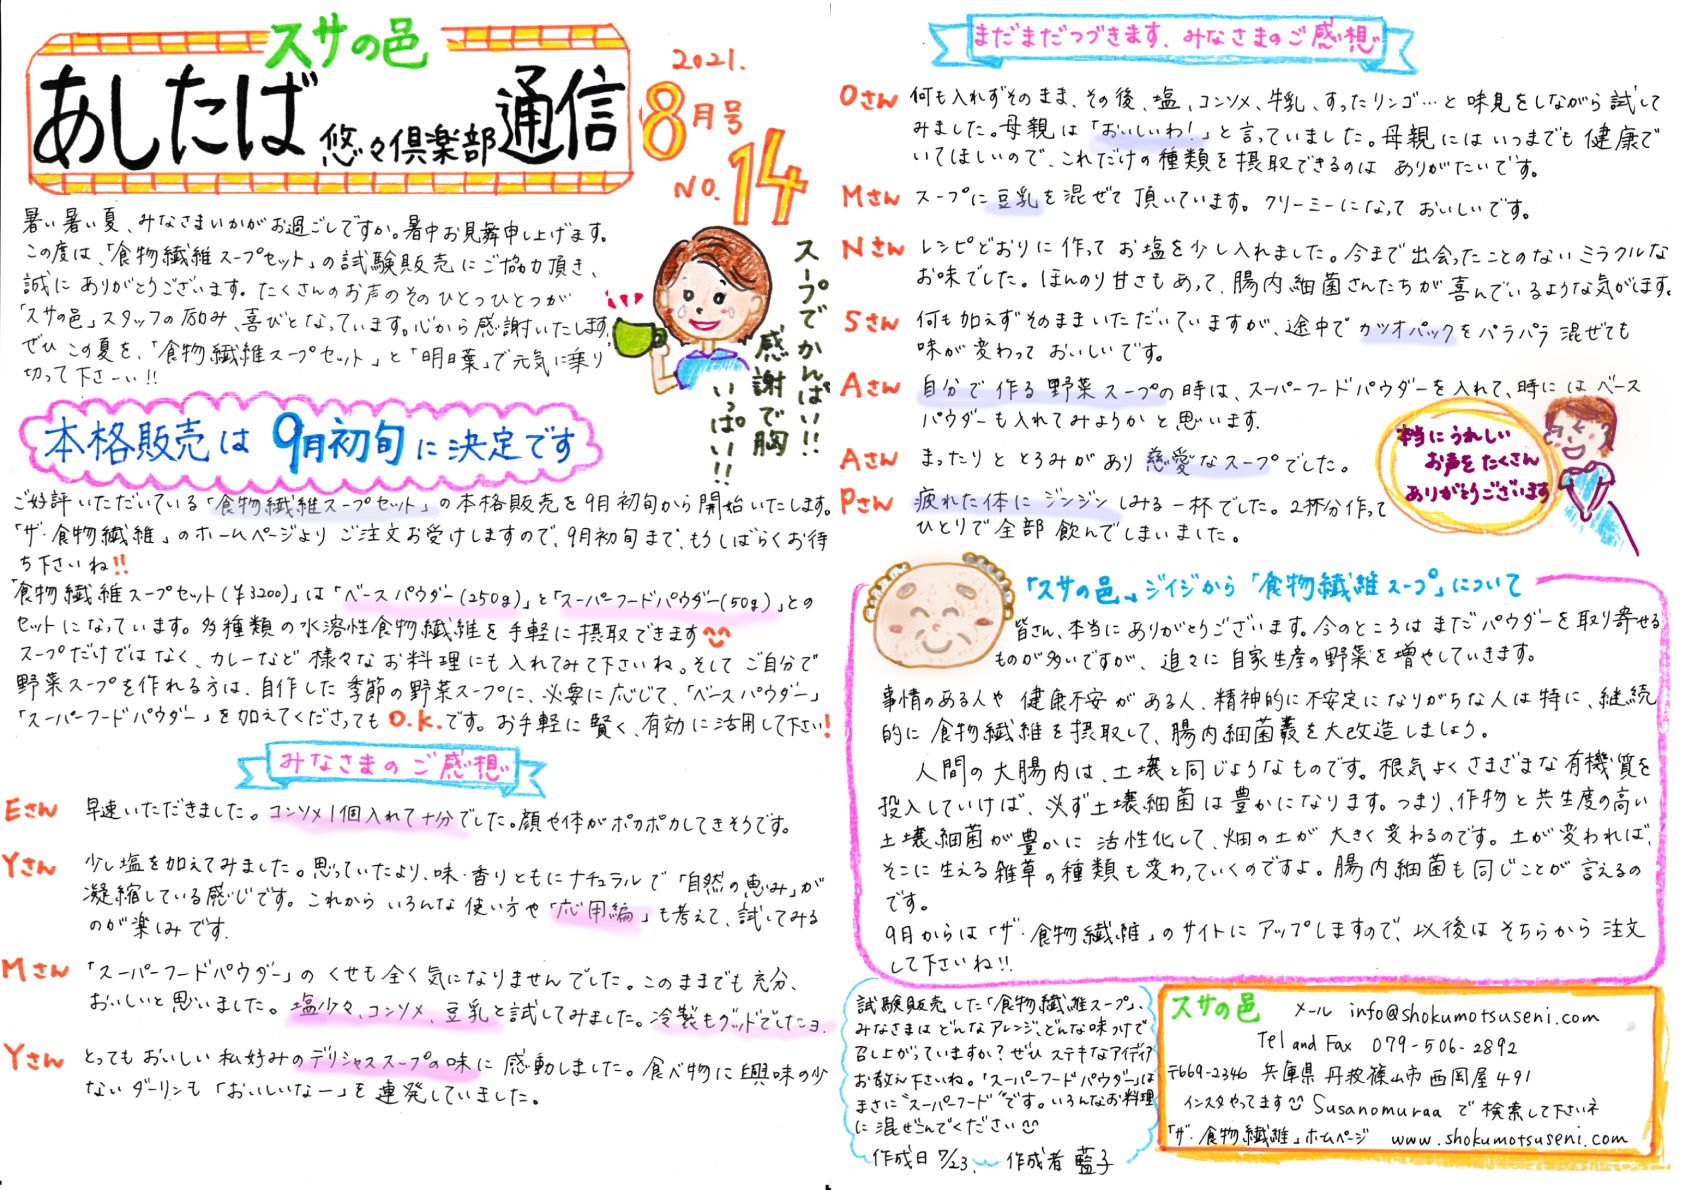 スサの邑
あしたば 悠々倶楽部 通信
2021.
8月号
NO.14
暑い暑い夏、みなさまいかがお過ごしですか。暑中お見舞申し上げます。
この度は、「食物繊維スープセット」の試験販売にご協力頂き、
誠にありがとうございます。たくさんのお声のそのひとつひとつが
「スサの邑」スタッフの励み、喜びとなっています。心から感謝いたします。
ぜひこの夏を、「食物繊維スープセット」と「明日葉」で元気に乗り
切って下さーい!!
スープでかんぱい!!
感謝で胸
いっぱーい!!
本格販売は9月初旬に決定です
ご好評いただいている「食物繊維スープセット」の本格販売を9月初旬から開始いたします。
「ザ・食物繊維」のホームページよりご注文お受けしますので、9月初旬まで、もうしばらくお待
ち下さいね!!
「食物繊維スープセット(¥3200)」は「ベースパウダー(250g)」と「スーパーフードパウダー(50g)」との
セットになっています。多種類の水溶性食物繊維を手軽に摂取できます
スープだけではなく、カレーなど様々なお料理にも入れてみて下さいね。そしてご自分で
野菜スープを作れる方は、自作した季節の野菜スープに、必要に応じて、「ベースパウダー」
「スーパーフードパウダー」を加えてくださってもO.K.です。お手軽に賢く、有効に活用して下さい!
みなさまのご感想
Eさん 早速いただきました。コンソメ1個入れて十分でした。顔や体がポカポカしてきそうです。
Yさん 少し塩を加えてみました。思っていたより、味・香りともにナチュラルで「自然の恵み」が
凝縮している感じです。これからいろんな使い方や「応用編」も考えて、試してみる
のが楽しみです。
Mさん 「スーパーフードパウダー」のくせも全く気になりませんでした。このままでも充分、
おいしいと思いました。塩少々、コンソメ、豆乳と試してみました。冷製もグッドでしたヨ。
Yさん とってもおいしい私好みのデリシャススープの味に感動しました。食べ物に興味の少
ないダーリンも「おいしいなー」を連発していました。
まだまだつづきます、みなさまのご感想
Oさん 何も入れずそのまま、その後、塩、コンソメ、牛乳、すったリンゴ…と味見をしながら試して
みました。母親は「おいしいわ!」と言っていました。母親にはいつまでも健康で
いてほしいので、これだけの種類を摂取できるのはありがたいです。
Mさん スープに豆乳を混ぜて頂いています。クリーミーになっておいしいです。
Nさん レシピどおりに作ってお塩を少し入れました。今まで出会ったことのないミラクルな
お味でした。ほんのり甘さもあって、腸内細菌さんたちが喜んでいるような気がします。
Sさん 何も加えずそのままいただいていますが、途中でカツオパックをパラパラ混ぜても
味が変わっておいしいです。
Aさん 自分で作る野菜スープの時は、スーパーフードパウダーを入れて、時にはベース
パウダーも入れてみようかと思います。
Aさん まったりととろみがあり慈愛なスープでした。
Pさん 疲れた体にジンジンしみる一杯でした。2杯分作って
ひとりで全部飲んでしまいました。
本当にうれしい
お声をたくさん
ありがとうございます
「スサの邑」、ジイジから「食物繊維スープ」について
皆さん、本当にありがとうございます。今のところはまだパウダーを取り寄せる
ものが多いですが、追々に自家生産の野菜を増やしていきます。
事情のある人や健康不安がある人、精神的に不安定になりがちな人は特に、継続
的に食物繊維を摂取して、腸内細菌叢を大改造しましょう。
人間の大腸内は、土壌と同じようなものです。根気よくさまざまな有機質を
投入していけば、必ず土壌細菌は豊かになります。つまり、作物と共生度の高い
土壌細菌が豊かに活性化して、畑の土が大きく変わるのです。土が変われば、
そこに生える雑草の種類も変わっていくのですよ。腸内細菌も同じことが言えるの
です。
9月からは「ザ・食物繊維」のサイトにアップしますので、以後はそちらから注文
して下さいね!!
試験販売した「食物繊維スープ」、
みなさまはどんなアレンジ、どんな味つけで
召し上がっていますか?ぜひステキなアイディア
お教え下さいね。「スーパーフードパウダー」は
まさに"スーパーフード"です。いろんなお料理
に混ぜこんでください
作成日 7/23. 作成者 藍子
スサの邑 メール info@shokumotsuseni.com
Tel and Fax 079-506-2892
〒669-2346 兵庫県丹波篠山市西岡屋491
インスタやってます Susanomuraa で検索して下さいネ
「ザ・食物繊維」ホームページ www.shokumotsuseni.com